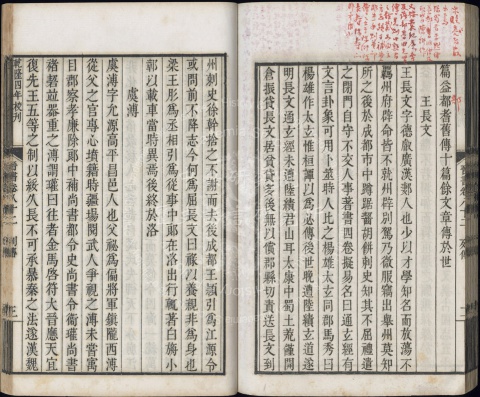 篇益部耆舊傳十篇餘文章傳於世
王長文
王長文字德叡廣漢郪人也少以才學知名而放蕩不
羈州府辟命皆不就州辟別駕乃微服竊出舉州莫知
所之後於成都市中蹲踞齧胡餅刺史知其不屈禮遣
之閉門自守不交人事著書四卷擬易名曰通玄經有
文言卦象可用卜筮時人比之楊雄太玄同郡馬秀曰
楊雄作太玄惟桓譚以爲必傳後世晚遭陸績玄道遂
明長文通玄經未遭陸績君山耳太康中蜀土荒饉開
倉振貸長文居貧貸多後無以償郡縣切責送長文到
州刺史徐幹捨之不謝而去後成都王穎引爲江源令
或問前不降志今何爲屈長文曰祿以養親非爲身也
梁王肜爲丞相引爲從事中郎在洛出行輒著白旃小
鄣以載車當時異焉後終於洛
虞溥
虞溥字允源高平昌邑人也父祕爲偏將軍鎮隴西溥
從父之官專心墳籍時疆埸閱武人爭視之溥未嘗寓
目郡察孝廉除郎中補尚書都令史尚書令衛瓘尚書
褚䂮並器重之溥謂瓘曰往者金馬啓符大晉應天宜
復先王五等之制以綏久長不可承暴秦之法遂漢魏
乾隆四年校刊